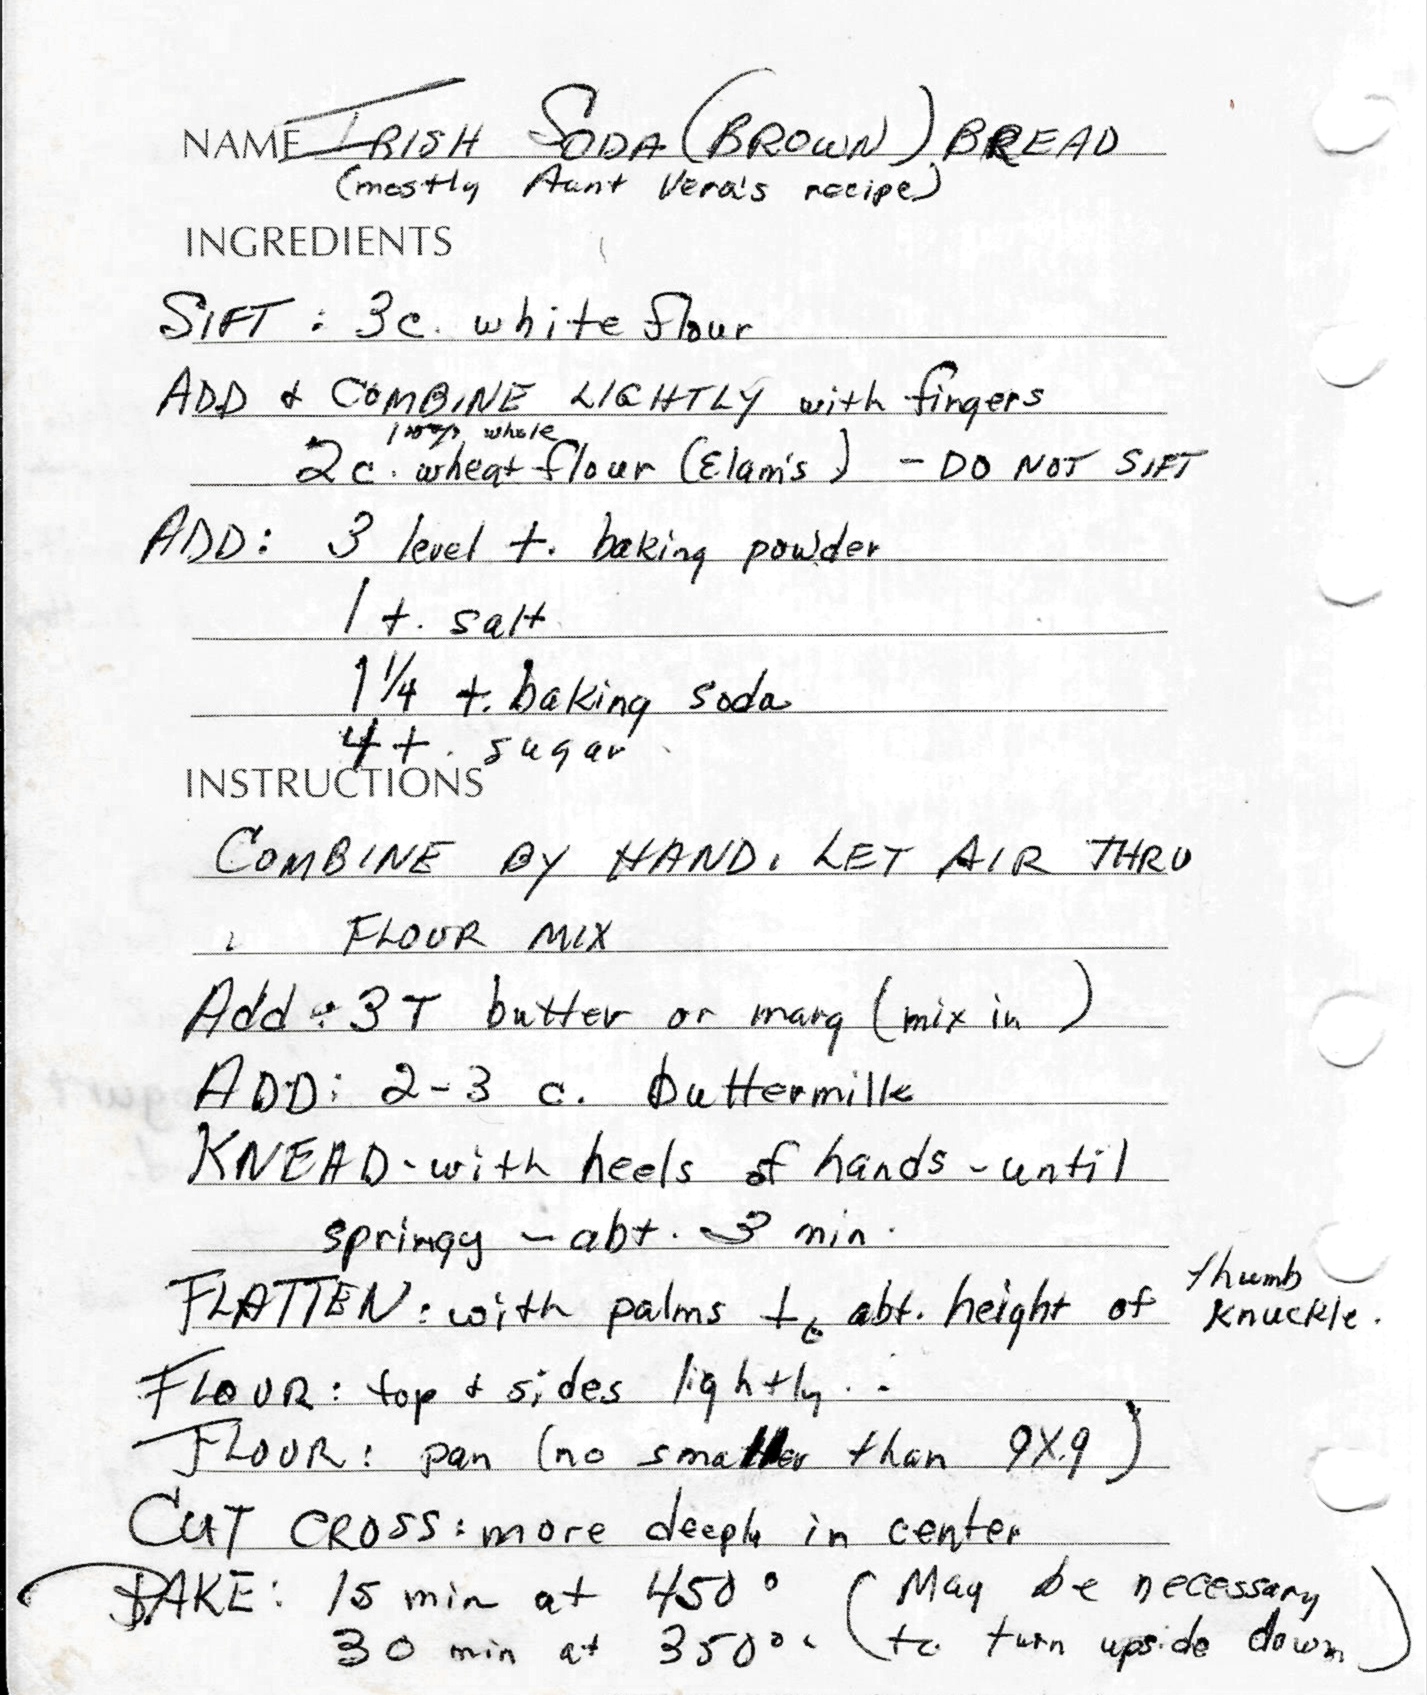 NAME IRISH SODA (BROWN) BREAD
(mostly Aunt Vera's recipe)
INGREDIENTS
SIFT: 3c. white flour
ADD & COMBINE LIGHTLY with fingers
100% whole
2c. wheat flour (Elam's) - DO NOT SIFT
ADD: 3 level t. baking powder
1 t. salt
1 1/4 t. baking soda
4 t. sugar
INSTRUCTIONS
COMBINE BY HAND. LET AIR THRU
FLOUR MIX
Add: 3 T butter or marg (mix in)
ADD: 2-3 c. buttermilk
KNEAD - with heels of hands - until
springy - abt. 3 min.
FLATTEN: with palms to abt. height of thumb knuckle.
FLOUR: top & sides lightly.
FLOUR: pan (no smaller than 9X9)
CUT CROSS: more deeply in center
BAKE: 15 min at 450° (May be necessary
30 min at 350°. to turn upside down)